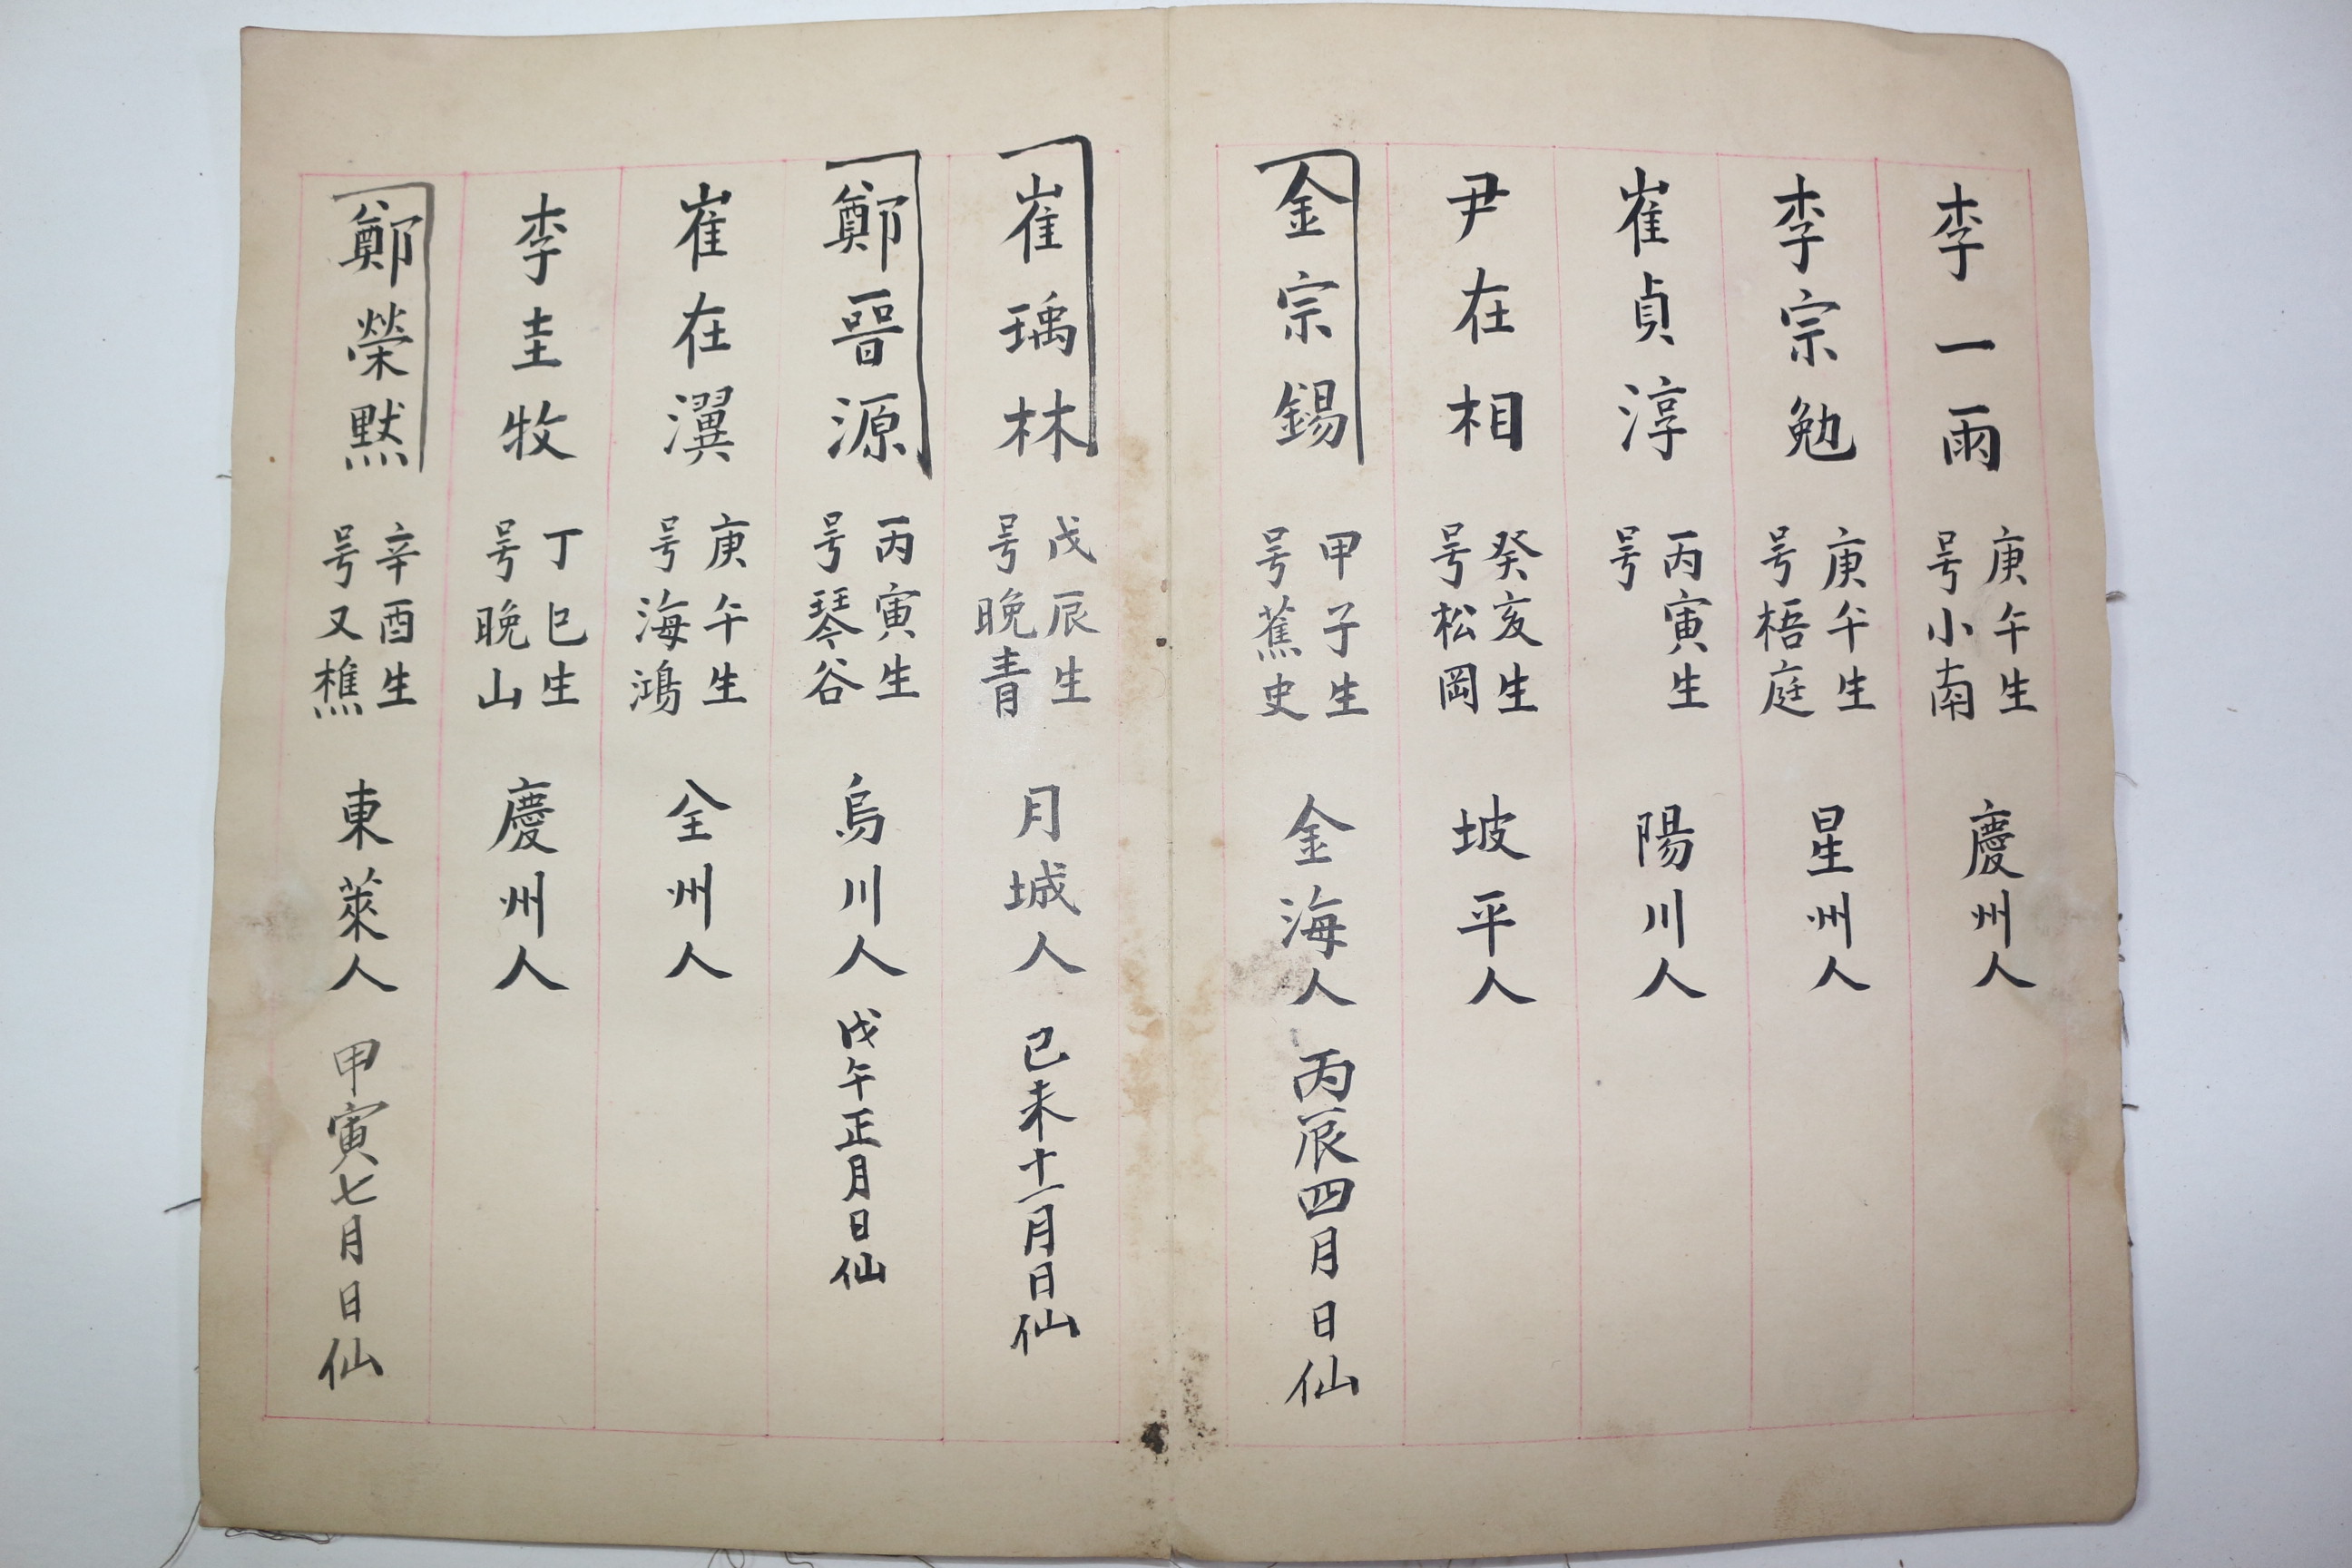 李一雨 庚午生 号小南 慶州人
李宗勉 庚午生 号梧庭 星州人
崔貞淳 丙寅生 号 陽川人
尹在相 癸亥生 号松岡 坡平人
金宗錫 甲子生 号蕉史 金海人 丙辰四月日仙
崔瑀林 戊辰生 号晩青 月城人 己未十一月日仙
鄭晉源 丙寅生 号琴谷 烏川人 戊午正月日仙
崔在瀷 庚午生 号海鴻 全州人
李圭牧 丁巳生 号晩山 慶州人
鄭榮默 辛酉生 号又樵 東萊人 甲寅七月日仙